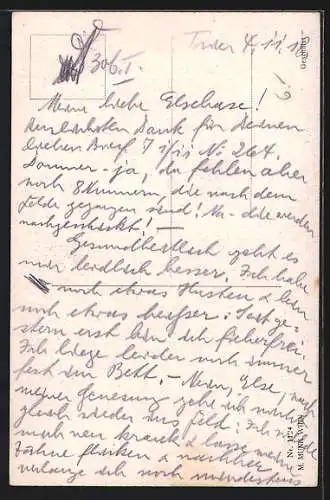 306.I.
4.11.1
Meine liebe Elschase!
Herzlichsten Dank für Deinen
lieben Brief 7/11 No 264.
Donner-ja, da fehlen aber
noch 8 Nummern, die nach dem
Felde gegangen sind! Na - die werden
nachgeschickt! —
Gesundheitlich geht es
mir leidlich besser. Ich habe
noch etwas Husten & bin
noch etwas heiser: Seit ge-
stern erst bin ich fieberfrei.
Ich liege leider noch immer
fest im Bett. — Nein, Else, nach
meiner Genesung gehe ich
gleich wieder ins Feld! Ich
mich neu krank & lasse meine
Zähne flicken & nachher
verlange ich noch mindestens
M. MUNK, WIEN
Nr. 1124